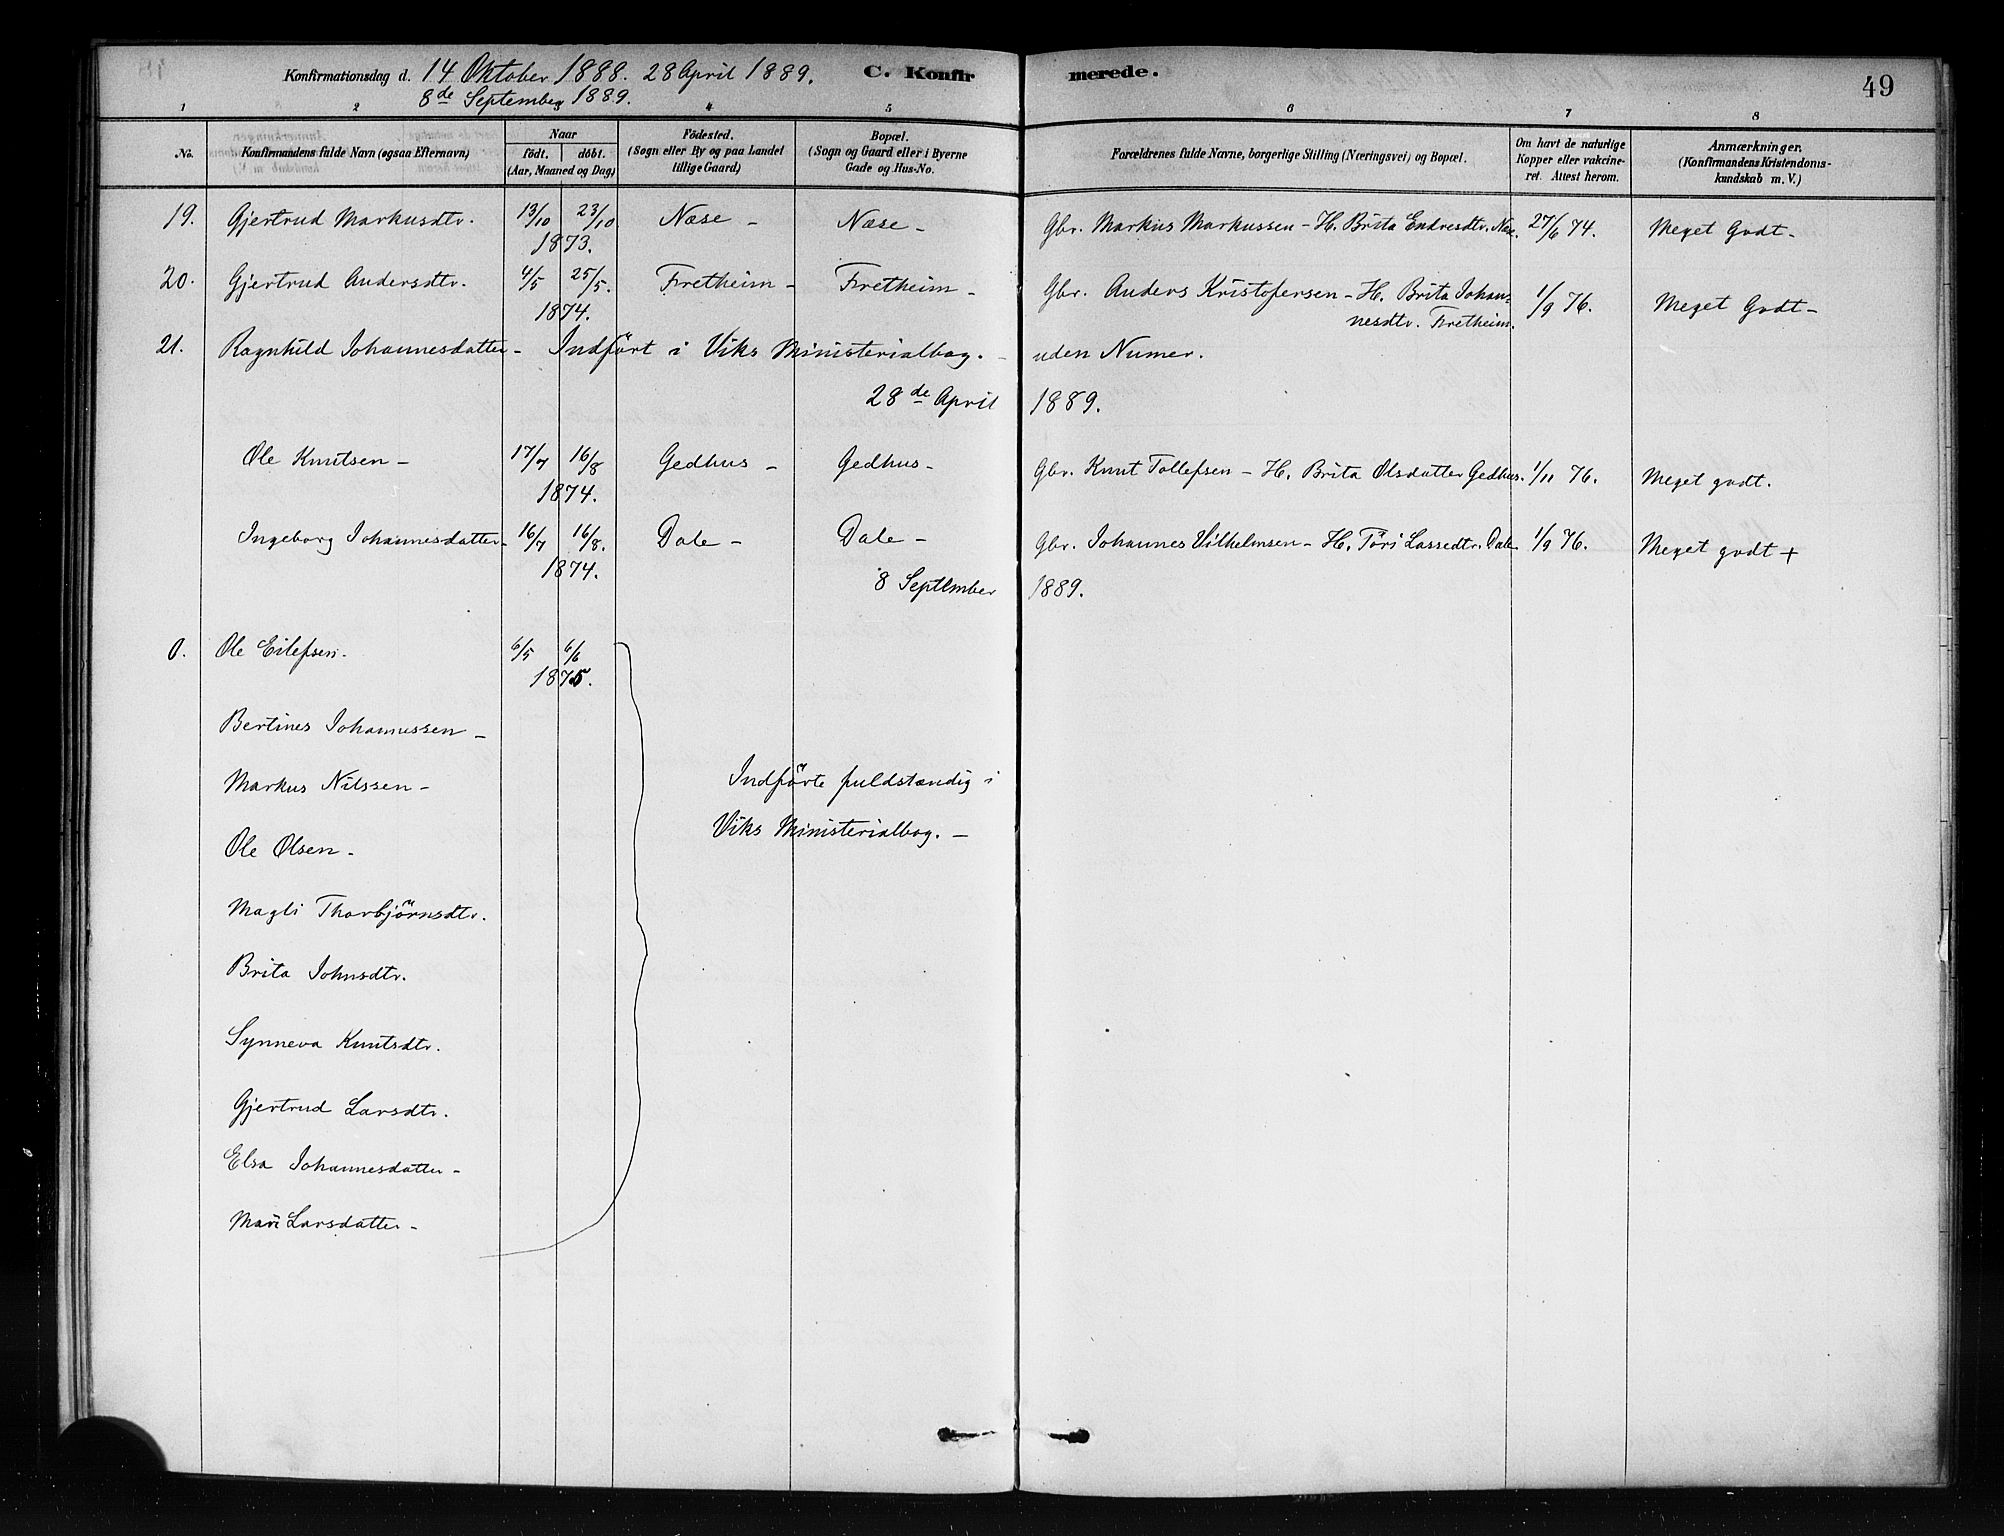 Konfirmationsdag d. 14 Oktober 1888. 28 April 1889. C. Konfirmerede. 49
8de September 1889.
1 2 3 4 5 6 7 8
No. Konfirmandens fulde Navn (ogsaa Efternavn) Naar födt. döbt. (Aar, Maaned og Dag) Födested. (Sogn eller By og paa Landet tillige Gaard) Bopæl. (Sogn og Gaard eller i Byerne Gade og Hus-No. Forældrenes fulde Navne, borgerlige Stilling (Næringsvei) og Bopæl. Om havt de naturlige Kopper eller vakcineret. Attest herom. Anmærkninger. (Konfirmandens Kristendomskundskab m. V.)
19. Gjertrud Markusdtr. 13/10 23/10 1873. Næse - Næse - Gbr. Markus Markussen - H. Brita Endresdtr. Næse. 27/6 74. Meget Godt -
20. Gjertrud Andersdtr. 4/5 25/5. 1874. Fretheim - Fretheim - Gbr. Anders Kristofersen - H. Brita Johan-
nesdtr. Fretheim. 1/9 76. Meget Godt -
21. Ragnhild Johannesdatter - Indført i Viks Ministerialbog. - uden Numer.
28de April 1889.
Ole Knutsen - 17/7 16/8 1874. Gedhus - Gedhus - Gbr. Knut Tollefsen - H. Brita Olsdatter Gedhus. 1/11 76. Meget godt.
Ingeborg Johannesdatter - 16/7 16/8. 1874. Dale - Dale - Gbr. Johannes Vilhelmsen - H. Töri Lassedtr. Dale 1/9 76. Meget godt +
8 September 1889.
0. Ole Eilefsen. 6/5 6/6 1875.
Bertines Johannessen -
Markus Nilssen - Indførte fuldstændig i
Viks Ministerialbog. -
Ole Olsen -
Magli Thorbjörnsdtr.
Brita Johnsdtr.
Synneva Knutsdtr.
Gjertrud Larsdtr.
Elsa Johannesdatter -
Mari Larsdatter -